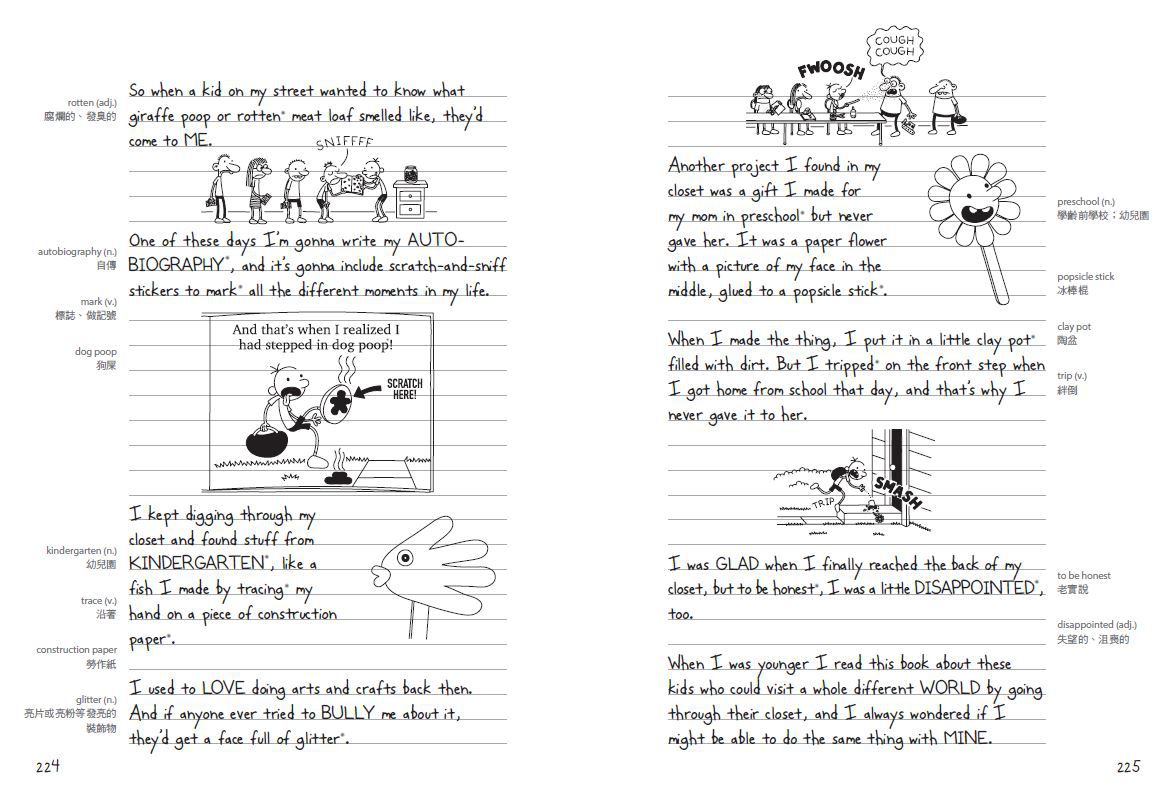 So when a kid on my street wanted to know what
rotten (adj.)
腐爛的、發臭的
giraffe poop or rotten* meat loaf smelled like, they'd
come to ME.
SNIFFFF
One of these days I'm gonna write my AUTO-
autobiography (n.)
自傳
BIOGRAPHY*, and it's gonna include scratch-and-sniff
stickers to mark* all the different moments in my life.
mark (v.)
標誌、做記號
And that's when I realized I
had stepped in dog poop!
dog poop
狗屎
SCRATCH
HERE!
I kept digging through my
closet and found stuff from
kindergarten (n.)
幼兒園
KINDERGARTEN*, like a
fish I made by tracing* my
trace (v.)
沿著
hand on a piece of construction
paper*.
construction paper
勞作紙
I used to LOVE doing arts and crafts back then.
glitter (n.)
亮片或亮粉等發亮的
裝飾物
And if anyone ever tried to BULLY me about it,
they'd get a face full of glitter*.
224
COUGH
COUGH
FWOOSH
Another project I found in my
closet was a gift I made for
my mom in preschool* but never
preschool (n.)
學齡前學校；幼兒園
gave her. It was a paper flower
with a picture of my face in the
middle, glued to a popsicle stick*.
popsicle stick
冰棒棍
When I made the thing, I put it in a little clay pot*
clay pot
陶盆
filled with dirt. But I tripped* on the front step when
I got home from school that day, and that's why I
trip (v.)
絆倒
never gave it to her.
TRIP
SMASH
I was GLAD when I finally reached the back of my
closet, but to be honest*, I was a little DISAPPOINTED*,
to be honest
老實說
too.
disappointed (adj.)
失望的、沮喪的
When I was younger I read this book about these
kids who could visit a whole different WORLD by going
through their closet, and I always wondered if I
might be able to do the same thing with MINE.
225